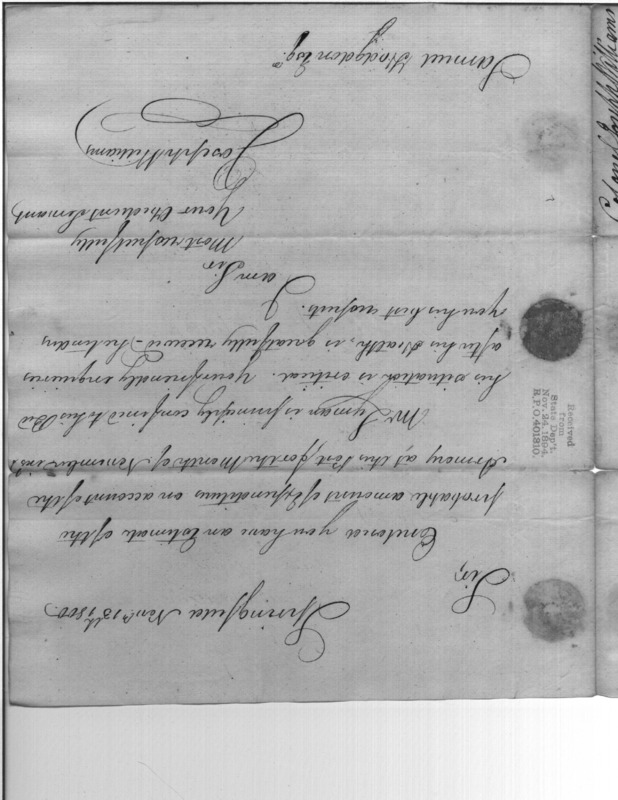 Springfield Novr. 13th 1800.
Sir,
Enclosed you have an Estimate of the
probable amount of Expenditures on account of the
Armory at this Post for the Month of November inst.
Mr. Lyman is principally confined to his Bed
his situation is critical. Your friendly enquiries
after his Health, is greatfully received - he returns
you his best respects.
I
am Sir
Most respectfully
Your Obedient Servant,
Joseph Williams
Samuel Hodgdon Esqr.
Received
from
State Dep't.
Nov. 24, 1894.
R.P.O. 401810.
Colonel Joseph Williams